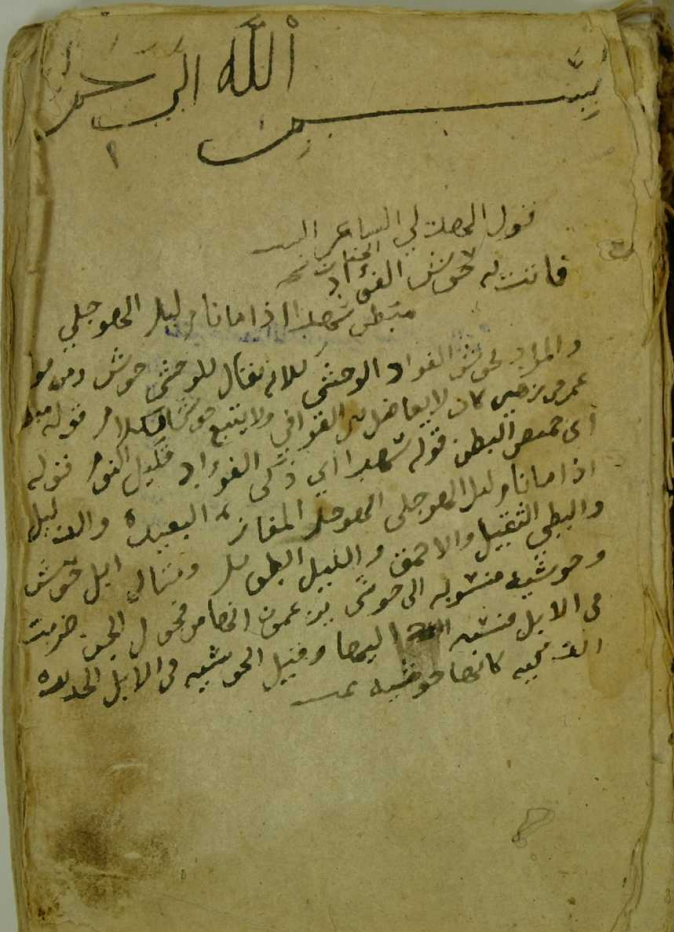 بسم الله الرحمن
قول الهذلي الشاعر
فاتت به حوش الفؤاد
مبطنا سهدا اذا ما نام ليل الهوجل
والمراد بحوش الفؤاد الوحشي كلام يقال للوحشي حوش ومن
عمر زهير كان لا يعاضل بين القوافي ولا يتبع حوشي الكلام قوله
أي خميص البطن قوله سهدا أي ذكي الفؤاد قليل النوم قوله
اذا ما نام ليل الهوجل الهوجل المفازة البعيدة والدليل
والبطي الثقيل والاحمق والليل الطويل ويقال ابل حوش
وحوشية منسوبة الى حوش يزعمون انها من فحول الجن ضربت
في الابل فنسبت اليها وقيل الحوشية من الابل
كانها حوشية